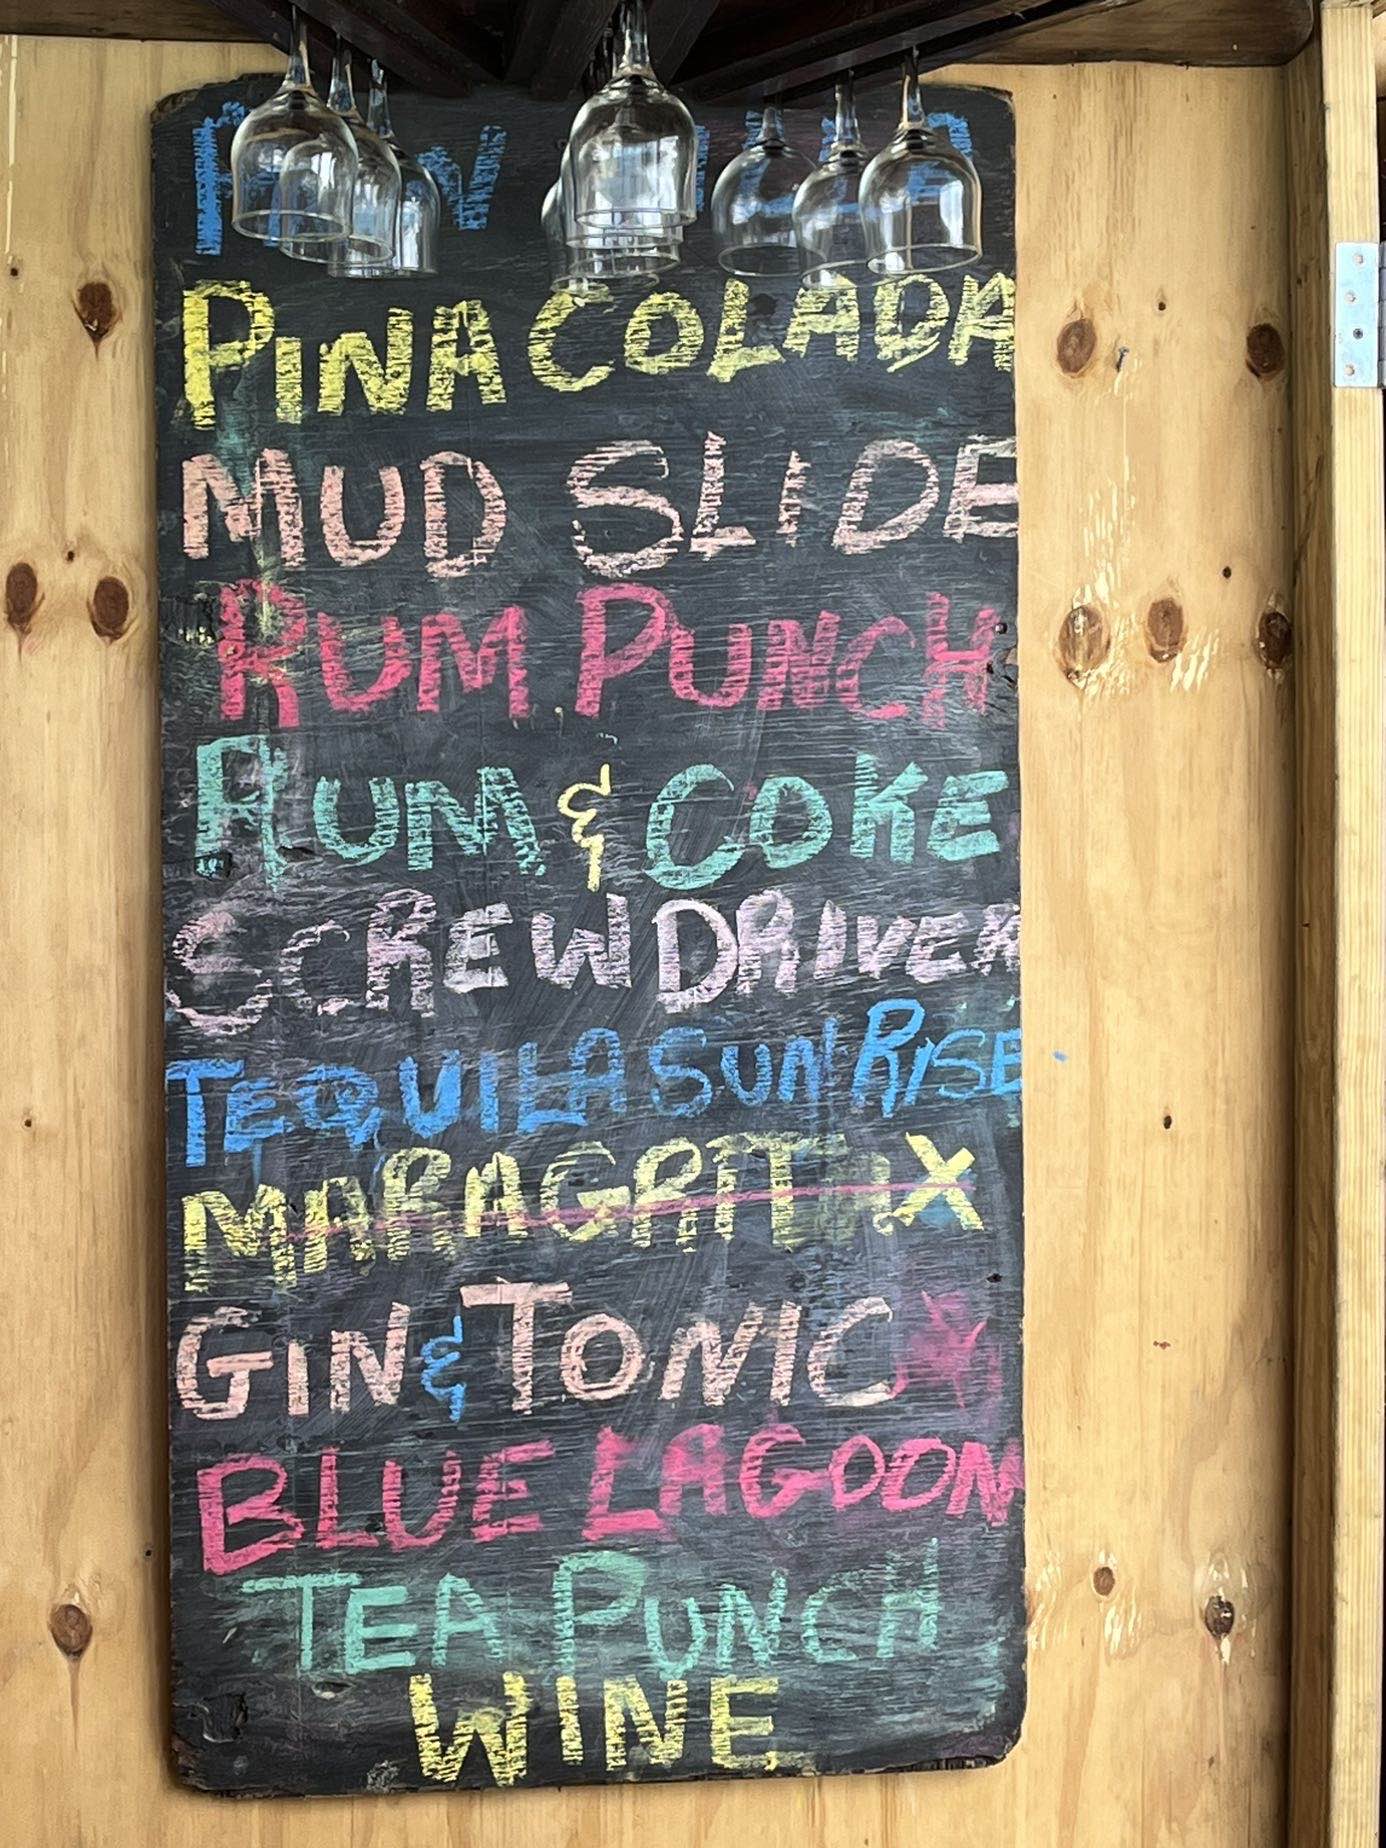 PINA COLADA
MUD SLIDE
RUM PUNCH
RUM & COKE
SCREWDRIVER
TEQUILA SUN RISE
MARAGRITTA X
GIN & TONIC
BLUE LAGOON
TEA PUNCH
WINE